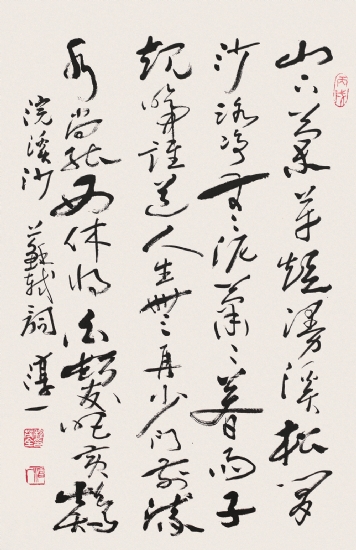 山下蘭芽短浸溪松間
沙路淨無泥蕭〻暮雨子
規啼誰道人生無再少門前流
水尚能西休將白髮唱黃雞
浣溪沙 蘇軾詞